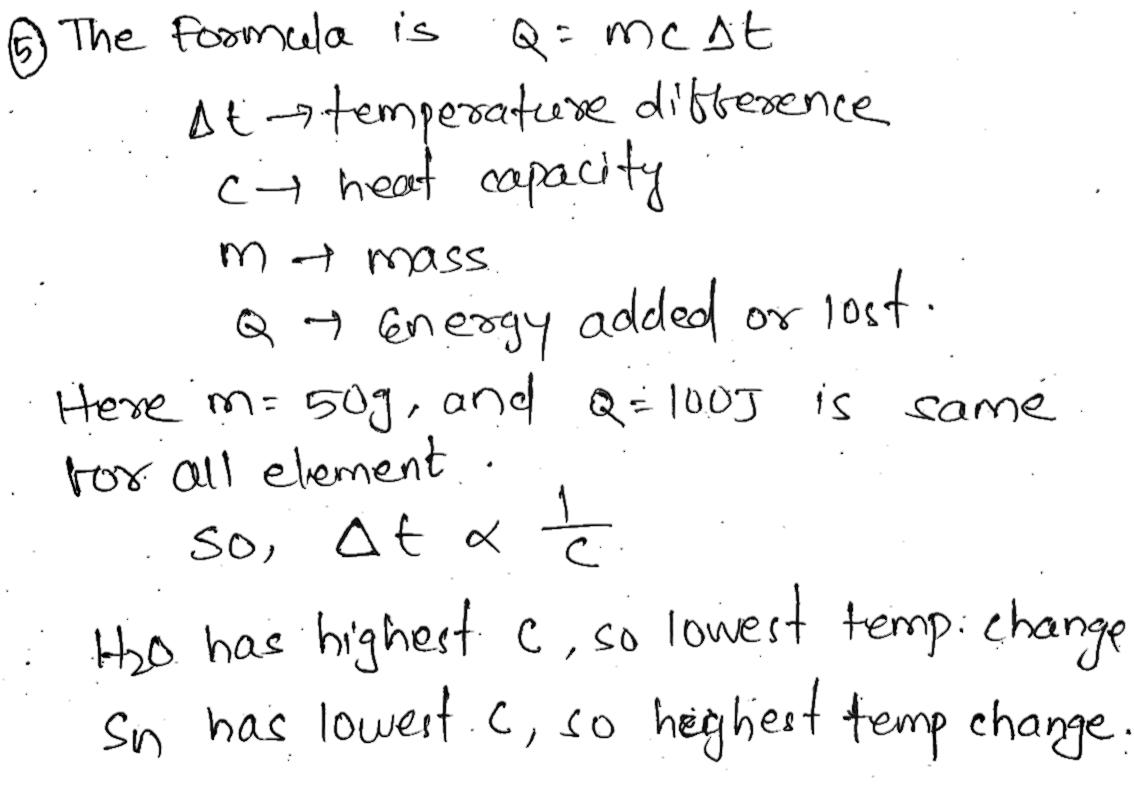 ⑤ The Formula is Q = mc Δt
Δt → temperature difference
c → heat capacity
m → mass
Q → Energy added or lost.
Here m = 50g, and Q = 100J is same
for all element.
so, Δt ∝ 1/c
H₂O has highest c, so lowest temp. change
Sn has lowest c, so highest temp change.